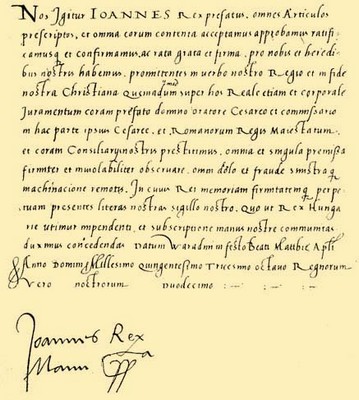 Nos Igitur IOANNES Rex prefatus, omnes Articulos
prescriptos, et omnia eorum contenta acceptamus approbamus ratifi-
camusq et confirmamus, ac rata grata et firma, pro nobis et heredi-
bus nostris habemus, promittentes in verbo nostro Regio et in fide
nostra Christiana Quemadmodum super hos Reale etiam et corporale
Juramentum coram prefato domino oratore Cesareo et commissario
in hac parte ipsius Cesaree, et Romanorum Regis Maiestatum,
et coram Consiliarijs nostris prestitimus, omnia et singula premissa
firmiter et inviolabiliter observare, omni dolo et fraude sinistraq
machinacione remotis. In cuius Rei memoriam firmitatemq perpe-
tuam presentes literas nostras sigillo nostro. Quo ut Rex Hunga
rie utimur impendenti, et subscriptione manus nostre communitas
duximus concedendas Datum Waradini in festo Beati Mathie Apli
Anno Domini Millesimo Quingentesimo Tricesimo octavo Regnorum
Vero nostrorum duodecimo
Joannes Rex
Manu ppa